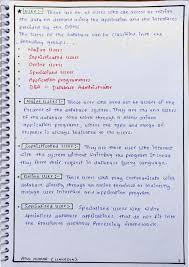 Users: These are set of users who can access or retrieve
the data on demand using the application and the interfaces
provided by the DBMS.
The users of the database can be classified into the
following groups.
• Native Users
• Sophisticated Users
• Online Users
• Specialized Users
• Application programmers
• DBA - Database Administrator
Native Users: Those users who need not be aware of the
presence of the database system. They are the end users
of the database who work through a menu driven
application programs, where the type and range of
response is always indicated to the users.
Sophisticated Users: They are those users who interact
with the system without writing the program instead
they form their request in database query language.
Online Users: Those users who may communicate with
database directly through an online terminal or indirectly
through user interface and application program.
Specialized Users: Those users who write
specialized database applications that do not fit into
the fractional database processing framework.